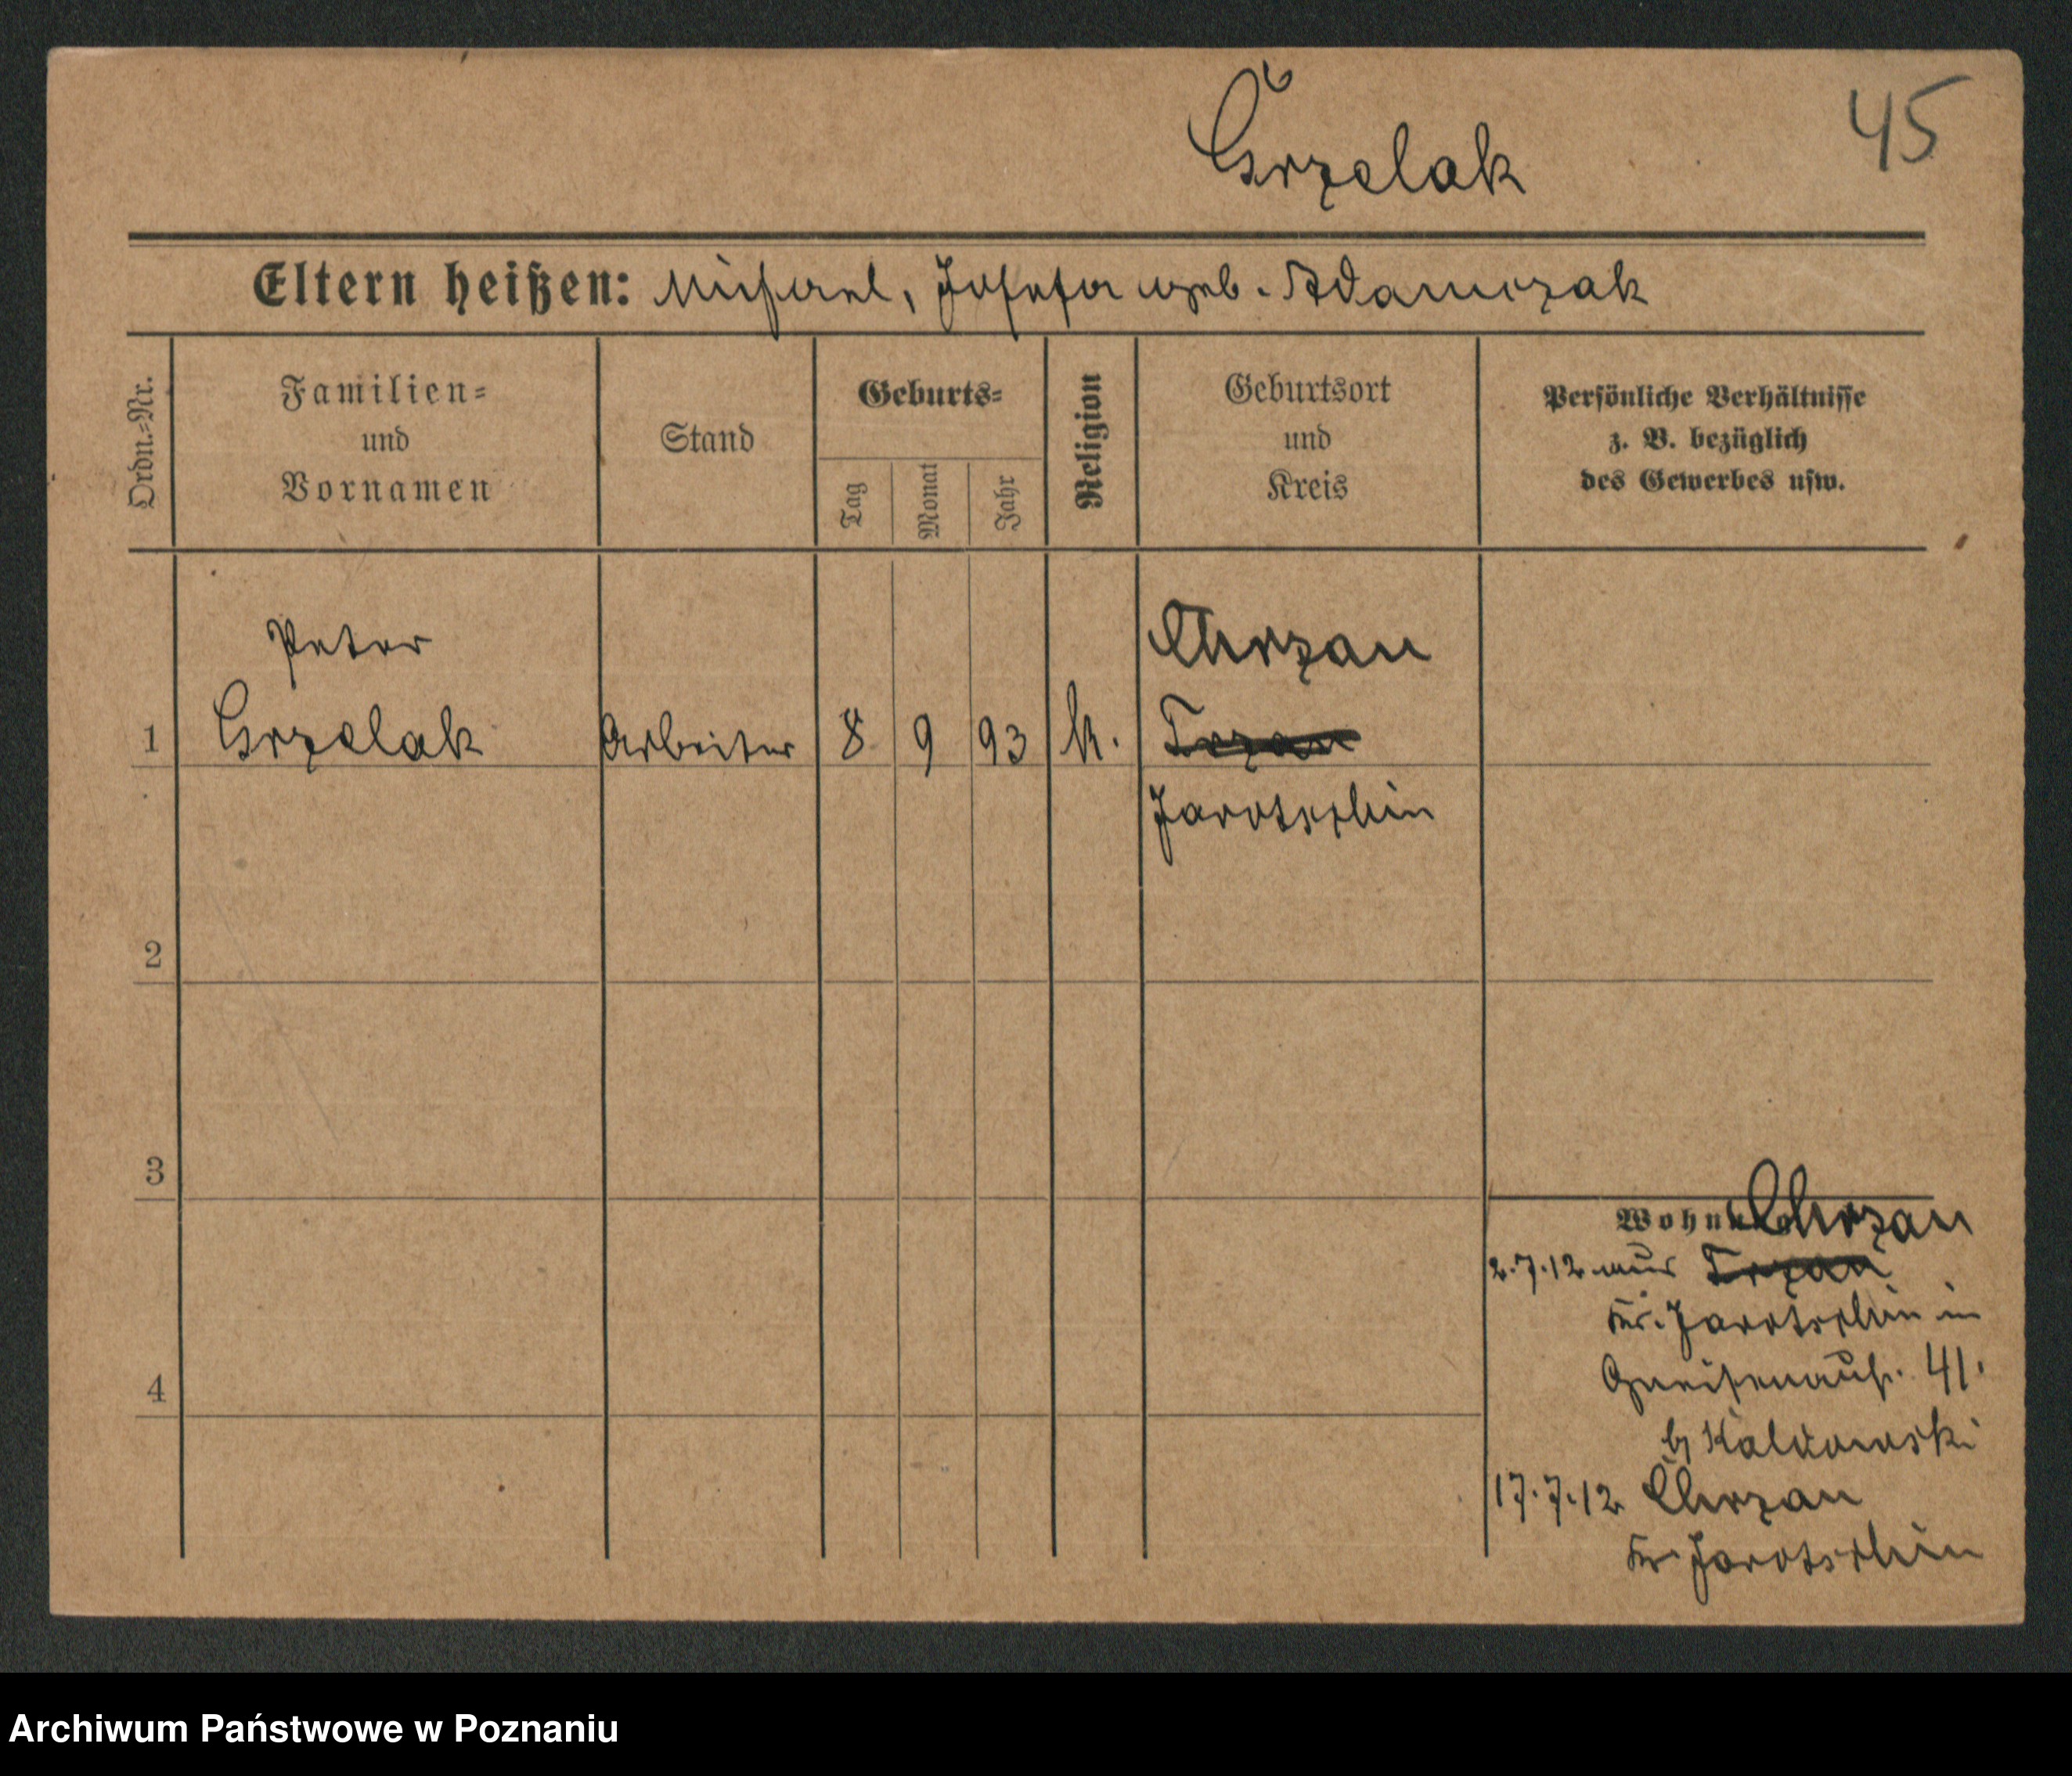 Grzelak
45
Eltern heißen: Michael, Josefa geb. Adamczak
Ordn.=Nr.
Familien=
und
Vornamen
Stand
Geburts=
Tag
Monat
Jahr
Religion
Geburtsort
und
Kreis
Persönliche Verhältnisse
z. B. bezüglich
des Gewerbes usw.
Peter
1 Grzelak Arbeiter 8 9 93 k.
Chrzan
Trzan
Jarotschin
2
3
4
Chrzan
2.7.12 aus Trzan
Kr. Jarotschin in
Gneisenaustr. 41.
b/ Kaldowski
17.7.12 Chrzan
Kr Jarotschin
Archiwum Państwowe w Poznaniu